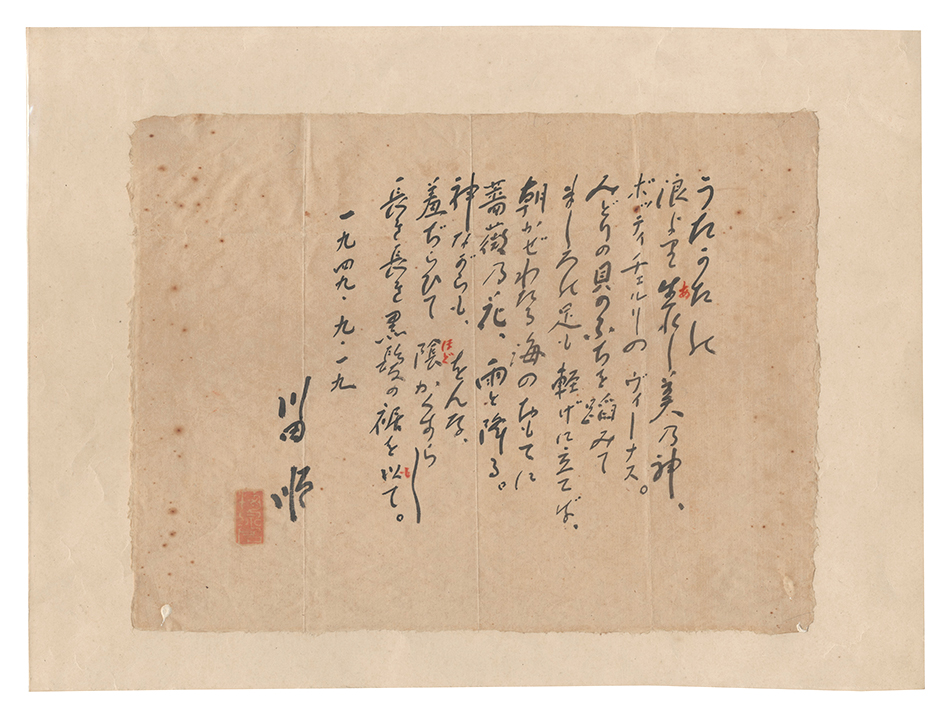 うたかたの
浪より生れし美乃神、
ボッティチェルリのヴィーナス。
みどりの貝のふちを蹈みて
ましろの足も軽げに立てば、
朝かぜわたる海のおもてに
薔薇乃花、雨と降る。
神ながらも、をんな、
羞ぢらひて陰かくすらし
長き長き黒髪の裾を以て。
一九四九・九・一九
川田 順
あ
ほど
も